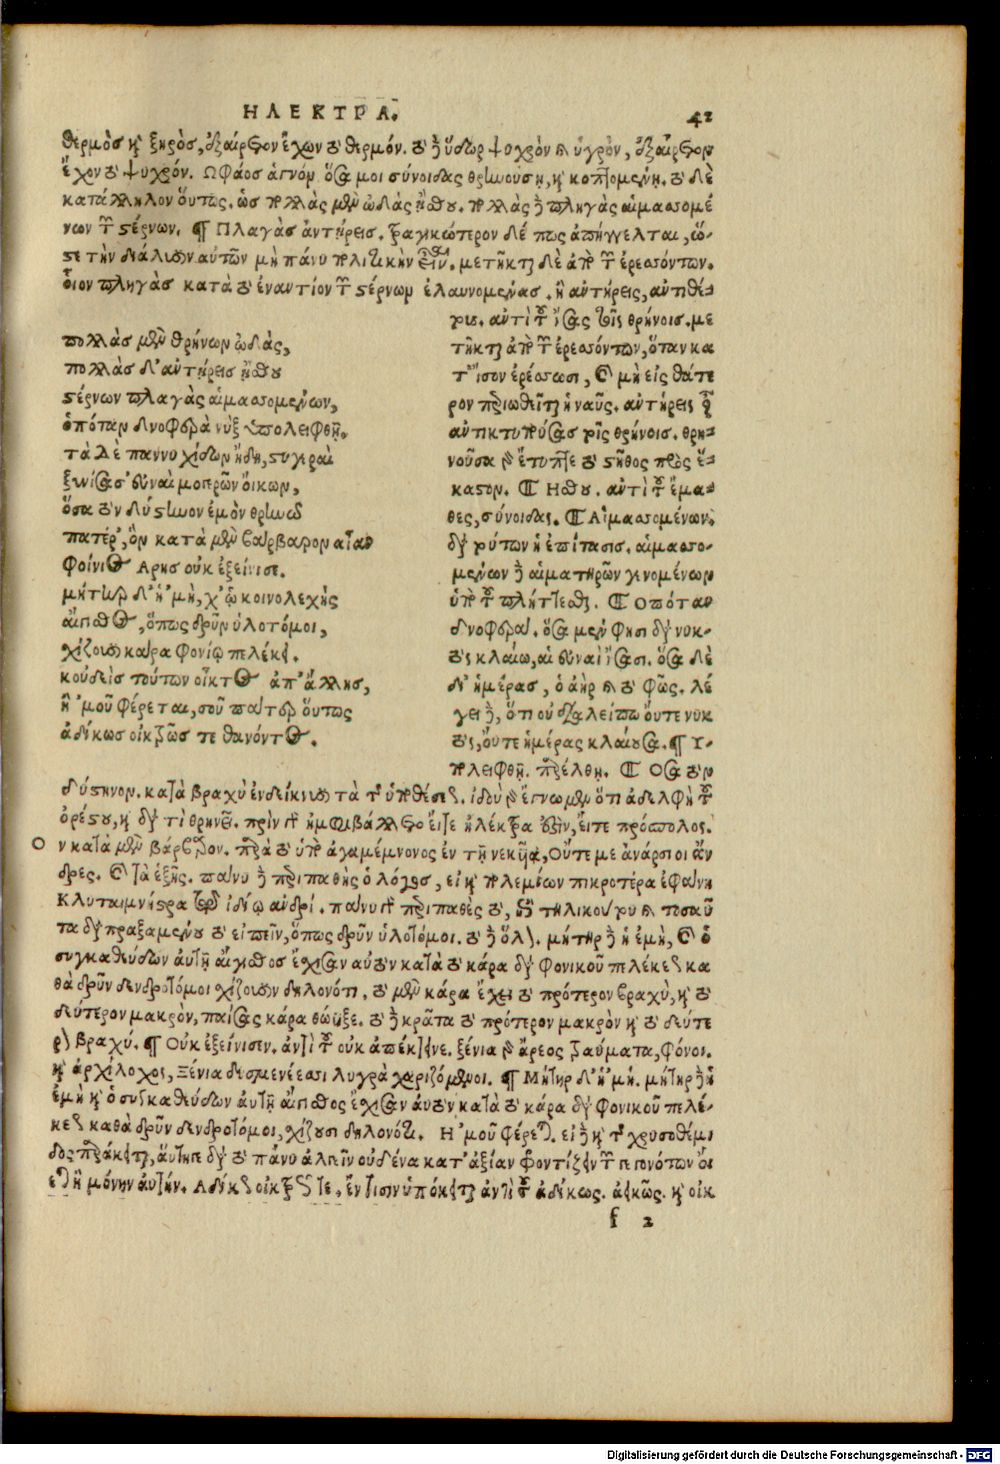 ΗΛΕΚΤΡΑ. 42
θερμὸς καὶ ξηρὸς, ἐξαίρετον ἔχων τὸ θερμόν. τὸ δὲ ὕδωρ ψυχρὸν καὶ ὑγρὸν, ἐξαίρετον
ἔχον τὸ ψυχρόν. Ω φάος ἁγνόν ὅσα μοι σύνοιδας θρηνούσῃ, καὶ κοπτομένῃ. τὸ δὲ
κατάλληλον οὕτως. ὡς πολλὰς μὲν ὠδὰς ᾔσθου. πολλὰς δὲ πληγὰς αἱμασσομέ
νων τῶν στέρνων. ¶ Πλαγὰς ἀντήρεις. τραγικώτερον δέ πως ἀπήγγελται, ὥ-
στε τὴν διάλυσιν αὐτῶν μὴ πάνυ πολιτικὴν εἶναι. μετῆκται δὲ ἀπὸ τῶν ἐρεσσόντων.
οἷον πληγὰς κατὰ τὸ ἐναντίον τῶν στέρνων ἐλαυνομένας. ἢ ἀντήρεις, ἀντιθέ-
πολλὰς μὲν θρήνων ᾠδὰς,
πολλὰς δ' ἀντήρεις ᾔσθου
στέρνων πλαγὰς αἱμασσομένων,
ὁπόταν δνοφερὰ νὺξ ὑπολειφθῇ.
τὰ δὲ παννυχίδων ἤδη, στυγεραὶ
ξυνίσασ' εὐναὶ μογερῶν οἴκων,
ὅσα τὸν δύστηνον ἐμὸν θρηνῶ
πατέρ', ὃν κατὰ μὲν βάρβαρον αἶαν
φοίνιος Αρης οὐκ ἐξείνισε.
μήτηρ δ' ἡ 'μὴ, χ' ὠ κοινολεχὴς
αἴγισθος, ὅπως δρῦν ὑλοτόμοι,
σχίζουσι κάρα φονίῳ πελέκει.
κοὐδεὶς τούτων οἶκτος ἀπ' ἄλλης,
ἢ 'μοῦ φέρεται, σοῦ πάτερ οὕτως
ἀδίκως οἰκτρῶς τε θανόντος.
ρις. ἀντὶ τοῦ ἴσας τοῖς θρήνοις. με
τῆκται ἀπὸ τῶν ἐρεσσόντων, ὅταν κα
τ' ἴσον ἐρέσσωσι, καὶ μὴ εἰς θάτε
ρον περιωθεῖται ἡ ναῦς. ἀντήρεις
ἀντικτυπούσας τοῖς θρήνοις. θρη-
νοῦσα γὰρ ἔτυπτε τὸ στῆθος πρὸς ἕ-
καστον. ¶ Ησθου. ἀντὶ τοῦ ἔμα-
θες, σύνοιδας. ¶ Αἱμασσομένων.
διὰ τούτων ἡ ἐπίτασις. αἱμασσο-
μένων δὲ αἱματηρῶν γινομένων
ὑπὸ τοῦ πλήττεσθαι. ¶ Οπόταν
δνοφερά. ὅσα μὲν φησι διὰ νυκ-
τὸς κλαίω, αἱ εὐναὶ ἴσασι. ὅσα δὲ
δι' ἡμέρας, ὁ ἀὴρ καὶ τὸ φῶς. λέ
γει δὲ, ὅτι οὐ διαλείπω οὔτε νυκ
τὸς, οὔτε ἡμέρας κλαίουσα. ¶ Υ-
πολειφθῇ. παρέλθῃ. ¶ Οσα τὸν
δύστηνον. κατὰ βραχὺ ἐνδείκνυσι τὰ τῆς ὑποθέσεως. ἰδοὺ γὰρ ἔγνωμεν ὅτι ἀδελφὴ τοῦ
ὀρέστου, καὶ διὰ τί θρηνεῖ. πρὶν γὰρ ἠμφιβάλλετο εἴτε ἠλέκτρα ἐστὶν, εἴτε πρόσπολος.
Ον κατὰ μὲν βάρβαρον. παρὰ τὸ ὑπὸ ἀγαμέμνονος ἐν τῇ νεκυίᾳ, Οὔτε με ἀνάρσιοι ἄν
δρες. καὶ τὰ ἑξῆς. πάνυ δὲ περιπαθὴς ὁ λόγος, εἰ καὶ πολεμίων πικροτέρα ἐφάνη
Κλυταιμνήστρα τῷ ἰδίῳ ἀνδρί. πάνυ γὰρ περιπαθὲς τὸ, ἐπὶ τηλικούτου καὶ τοσαῦ
τα διαπραξαμένου τὸ εἰπεῖν, ὅπως δρῦν ὑλοτόμοι. τὸ δὲ ὅλον. μήτηρ δὲ ἡ ἐμὴ, καὶ ὁ
συγκαθεύδων αὐτῇ αἴγισθος ἔσχισαν αὐτὸν κατὰ τὸ κάρα διὰ φονικοῦ πελέκεως κα
θὰ δρῦν δενδροτόμοι σχίζουσιν δηλονότι. τὸ μὲν κάρα ἔχει τὸ πρότερον βραχὺ, καὶ τὸ
δεύτερον μακρὸν, παίσας κάρα θώυξε. τὸ δὲ κρᾶτα τὸ πρότερον μακρὸν καὶ τὸ δεύτε
ρον βραχύ. ¶ Οὐκ ἐξείνισεν. ἀντὶ τοῦ οὐκ ἀπέκτεινε. ξένια γὰρ ἄρεος τραύματα, φόνοι.
καὶ ἀρχίλοχος, Ξένια δυσμενέεσσι λυγρὰ χαριζόμενοι. ¶ Μήτηρ δ' ἡ 'μή. μήτηρ δὲ ἡ
ἐμὴ καὶ ὁ συγκαθεύδων αὐτῇ αἴγισθος ἔσχισαν αὐτὸν κατὰ τὸ κάρα διὰ φονικοῦ πελέ-
κεως καθὰ δρῦν δενδροτόμοι, σχίζουσι δηλονότι. Η 'μοῦ φέρεται. εἰ δὲ καὶ τῆς χρυσοθέμι
δος παράκειται, ἀλγεῖν οὐδένα κατ' ἀξίαν φροντίζειν τῶν γεγονότων οἴ
εται ἢ μόνην αὐτήν. Αδίκως οἰκτρῶς τε, ἐν τισιν ὑπόκειται ἀντὶ τοῦ ἀδίκως. ἀεικῶς. καὶ οἰκ
f 2
Digitalisierung gefördert durch die Deutsche Forschungsgemeinschaft - DFG